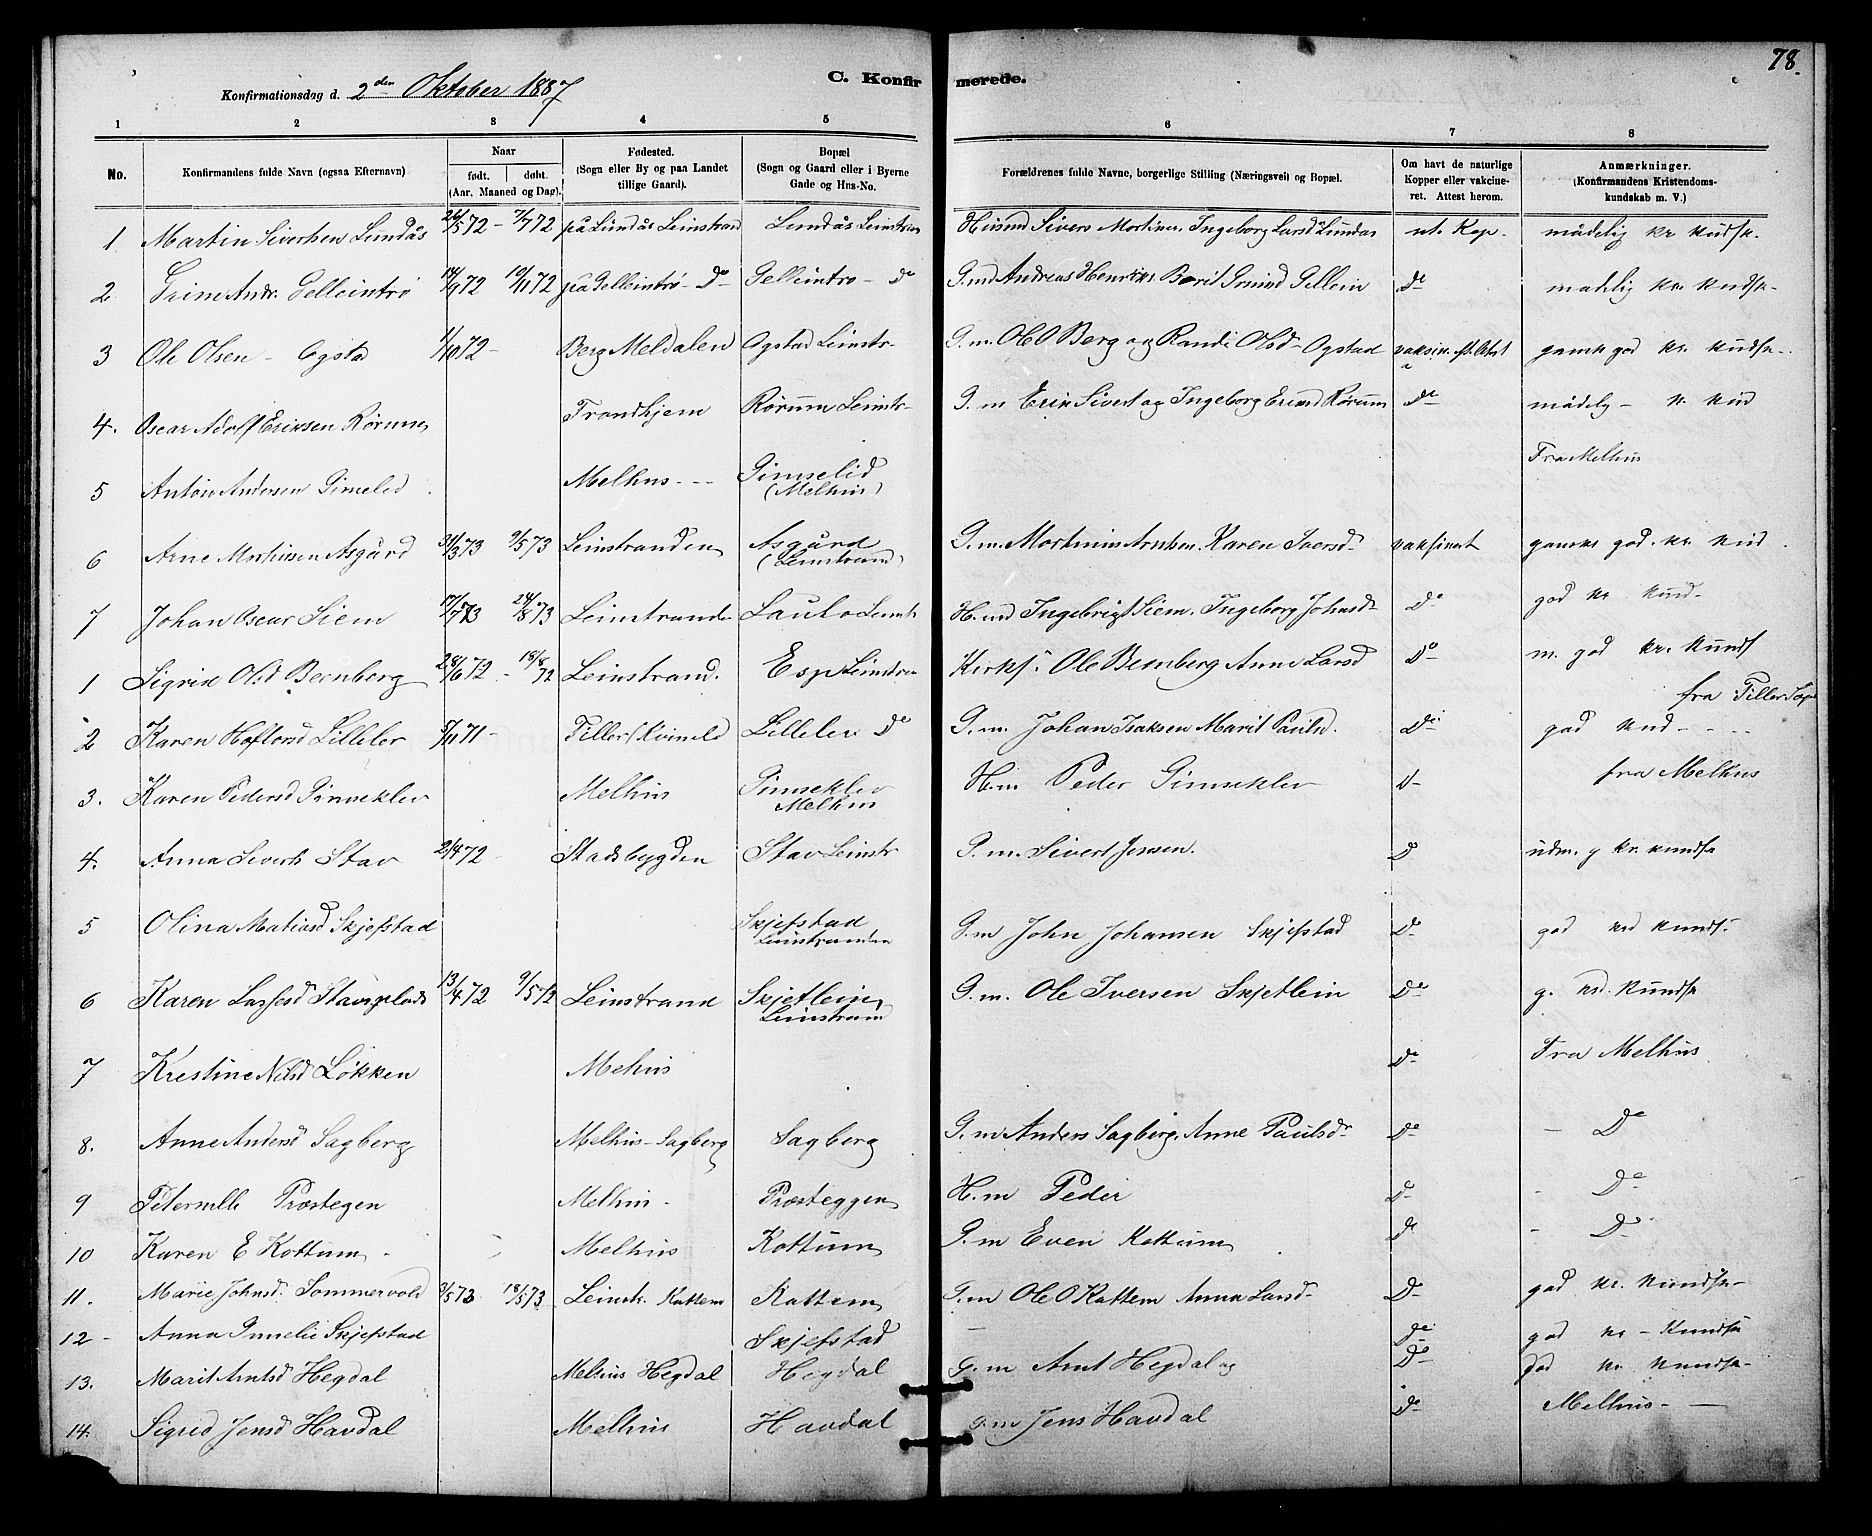 78.
C. Konfirmerede.
Konfirmationsdag d. 2den Oktober 1887
1 2 3 4 5 6 7 8
No. Konfirmandens fulde Navn (ogsaa Efternavn) Naar født. døbt. (Aar. Maaned og Dag). Fødested. (Sogn eller By og paa Landet tillige Gaard). Bopæl (Sogn og Gaard eller i Byerne Gade og Hus-No. Forældrenes fulde Navne, borgerlige Stilling (Næringsvei) og Bopæl. Om havt de naturlige Kopper eller vakcineret. Attest herom. Anmærkninger. (Konfirmandens Kristendomskundskab m. V.)
1 Martin Sivertsen Lundås 26/5 72 - 7/7 72 på Lundås Leinstrand Lundås Leinstrand Husmd Sivert Mortinsen Ingeborg Larsd Lundås nt. Kop. mådelig kr kudsk.
2 Trine Andr. Gelleintrø 14/9 72 10/11 72 på Gelleintrø - Do Gelleintrø - Do G.md Andreas Henriks. Berit Do madelig kr. kudsk-
3 Ole Olsen - Ogstad 1/10 72 - Berg Meldalen Ogstad Leinstr- G.m. Ole O Berg og Randi Olsd - Ogstad vaksin. god kr. kudsk-
4. Oscar Adolf Eriksen Rørum Trondhjem Rørum Leinstr- G. m Erik Sivert og Ingeborg Rørum Do mådelig - kr. kud
5 Anton Andersen Gimselid Melhus - - - Gimselid (Melhus) Fra Melhus
6 Arne Martinsen Asgård 31/3 73 9/5 73 Leinstranden Asgård (Leinstrand) G.m. Martinus Karen Iversd- vaksinert ganske god. kr. kud
7 Johan Oscar Siem 17/7 73 24/8 73 Leinstranden Leinstr H.md Ingebrigt Siem. Ingeborg Johnsd Do god kr kund-
1 Sigrid Olsd Bernberg 28/6 72 - 18/8 72 Leinstrand. Esp Leinstran Kirks. Ole Bernberg Anne Larsd Do m. god kr. kundsk
2 Karen Lilleler 5/11 71 - Tiller Lilleler Do G.m. Johan Isaksen Marit Paulsd. Do fra Tiller god kud - - -
3. Karen Pedersd Gimseklev Melhus Gimseklev Melhus H.m Peder Gimseklev D- fra Melhus
4. Anna Siverts Stav 2/4 72 - Stadsbygden Stav Leinstr G.m. Sivert Jensen. D udm. g kr. kundsk
5 Olina Matiasd Skjefstad Skjefstad Leinstranden G.m John Johansen Skjefstad Do god krd kunds.
6 Karen Lassesd 13/4 72 9/5 72 Leinstrand Skjetlein Leinstrand G.m. Ole Iversen Skjetlein Do g. krd. kundsk
7 Kristine Nilsd Løkken Mehus Do Fra Melhus
8. Anne Andersd Sagberg Melhus - Sagberg Sagberg G.m Anders Sagberg. Anne Paulsdr Do - Do
9 Peternelle Præstegen Melhus - Præsteggen H.m Peder D - Do
10 Karen E Kottum - Melhus Kottum G.m Even Kottum Do - Do
11. Marie Johnsd. Sommervold 3/5 73 18/5 73 Leinstr. Kattem Kattem G.m Ole O Kattem Anna Larsd- Do god kr. kundsk-
12 - Anna Skjefstad Skjefstad — Do god kr - kundsk
13. Marit Arntsd Hegdal Melhus Hegdal Hegdal G.m Arnt Hegdal og Do god kr kundsk-
14. Sigrid Jensd Havdal Melhus Havdal G.m Jens Havdal Do Melhus - —